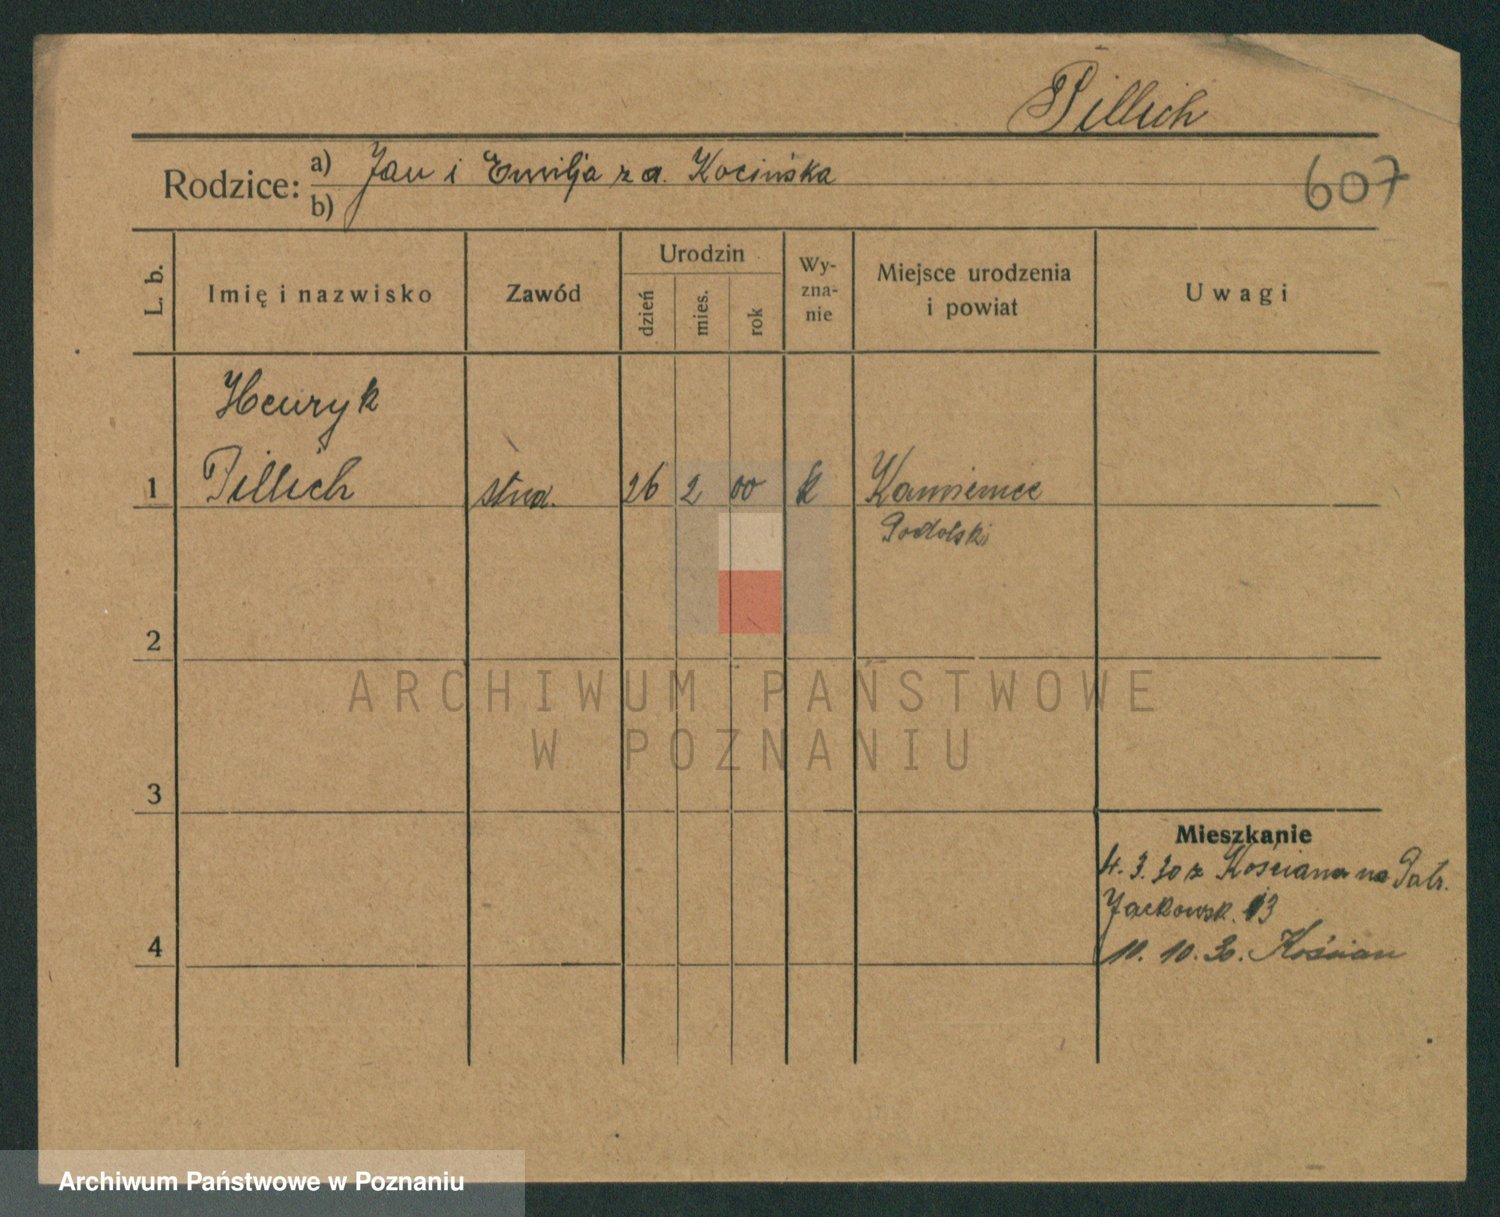 Pillich
Rodzice: a) Jan i Emilja z d. Kocińska
b)
607
L. b. Imię i nazwisko Zawód Urodzin dzień mies. rok Wyznanie Miejsce urodzenia i powiat Uwagi
Henryk
1 Pillich stud. 26 2 00 k Kamieniec
Podolski
2
ARCHIWUM PAŃSTWOWE
W POZNANIU
3
Mieszkanie
4. 3. 30 z Kościana na Patr.
Jackowsk. 13
4 11. 10. 30. Kościan
Archiwum Państwowe w Poznaniu